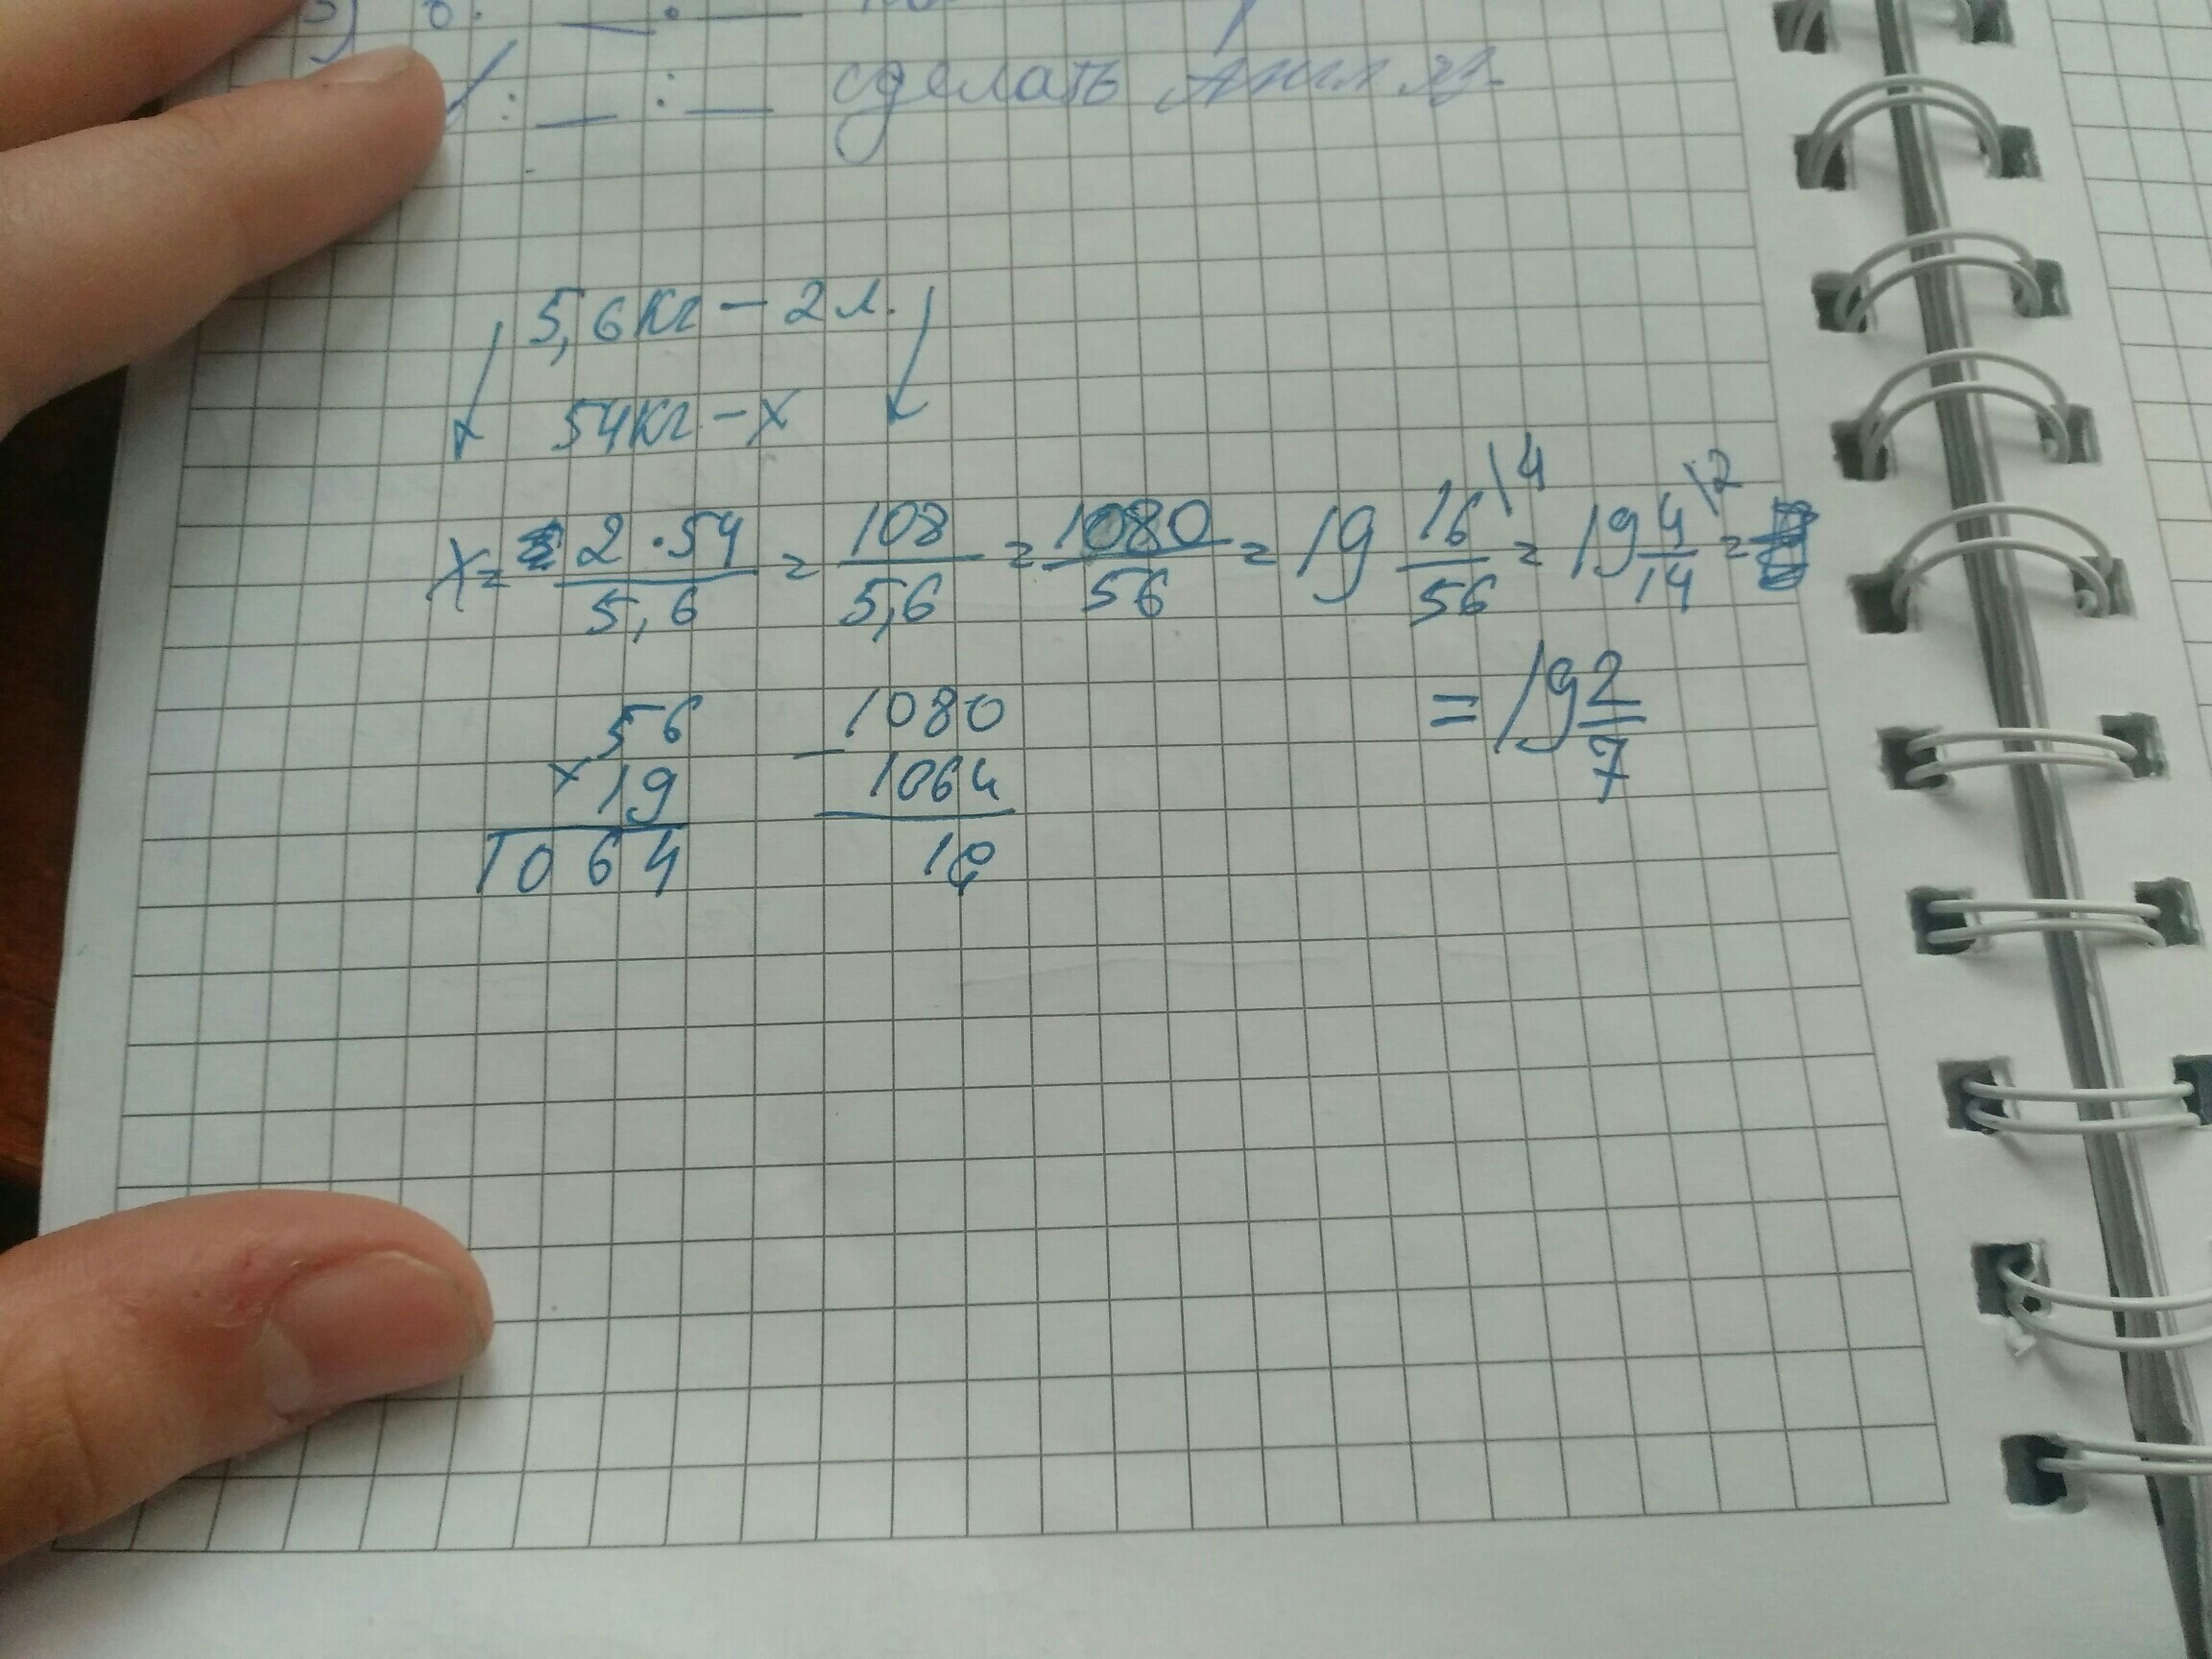 сделать Англ яз.
5,6кг – 2л.
54кг – x
x = 2 · 54 / 5,6 = 108 / 5,6 = 1080 / 56 = 19 16\4 / 56 = 19 4\2 / 14 =
= 19 2/7
56
× 19
1064
1080
– 1064
16